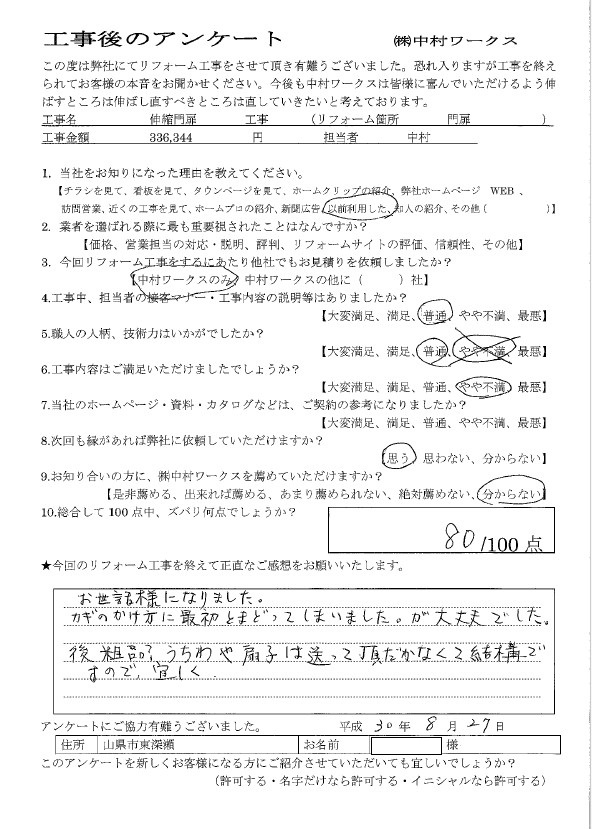 工事後のアンケート　㈱中村ワークス
この度は弊社にてリフォーム工事をさせて頂き有難うございました。恐れ入りますが工事を終え
られてお客様の本音をお聞かせください。今後も中村ワークスは皆様に喜んでいただけるよう伸
ばすところは伸ばし直すべきところは直していきたいと考えております。
工事名　伸縮門扉　工事　（リフォーム箇所　門扉　）
工事金額　336,344　円　担当者　中村
1．当社をお知りになった理由を教えてください。
【チラシを見て、看板を見て、タウンページを見て、ホームクリップの紹介、弊社ホームページ　WEB 、
訪問営業、近くの工事を見て、ホームプロの紹介、新聞広告、以前利用した、知人の紹介、その他（　）】
2．業者を選ばれる際に最も重要視されたことはなんですか？
【価格、営業担当の対応・説明、評判、リフォームサイトの評価、信頼性、その他】
3．今回リフォーム工事をするにあたり他社でもお見積りを依頼しましたか？
【中村ワークスのみ、中村ワークスの他に（　）社】
4.工事中、担当者の接客マナー・工事内容の説明等はありましたか？
【大変満足、満足、普通、やや不満、最悪】
5.職人の人柄、技術力はいかがでしたか？
【大変満足、満足、普通、やや不満、最悪】
6.工事内容はご満足いただけましたでしょうか？
【大変満足、満足、普通、やや不満、最悪】
7.当社のホームページ・資料・カタログなどは、ご契約の参考になりましたか？
【大変満足、満足、普通、やや不満、最悪】
8.次回も縁があれば弊社に依頼していただけますか？
【思う、思わない、分からない】
9.お知り合いの方に、㈱中村ワークスを薦めていただけますか？
【是非薦める、出来れば薦める、あまり薦められない、絶対薦めない、分からない】
10.総合して 100 点中、ズバリ何点でしょうか？
80/100 点
★今回のリフォーム工事を終えて正直なご感想をお願いいたします。
お世話様になりました。
カギのかけ方に最初とまどってしまいました。が大丈夫でした。
後粗品、うちわや扇子は送って頂だかなくて結構で
すので、宜しく．
アンケートにご協力有難うございました。　平成 30 年 8 月 27 日
住所　山県市東深瀬　お名前　様
このアンケートを新しくお客様になる方にご紹介させていただいても宜しいでしょうか？
（許可する・名字だけなら許可する・イニシャルなら許可する）